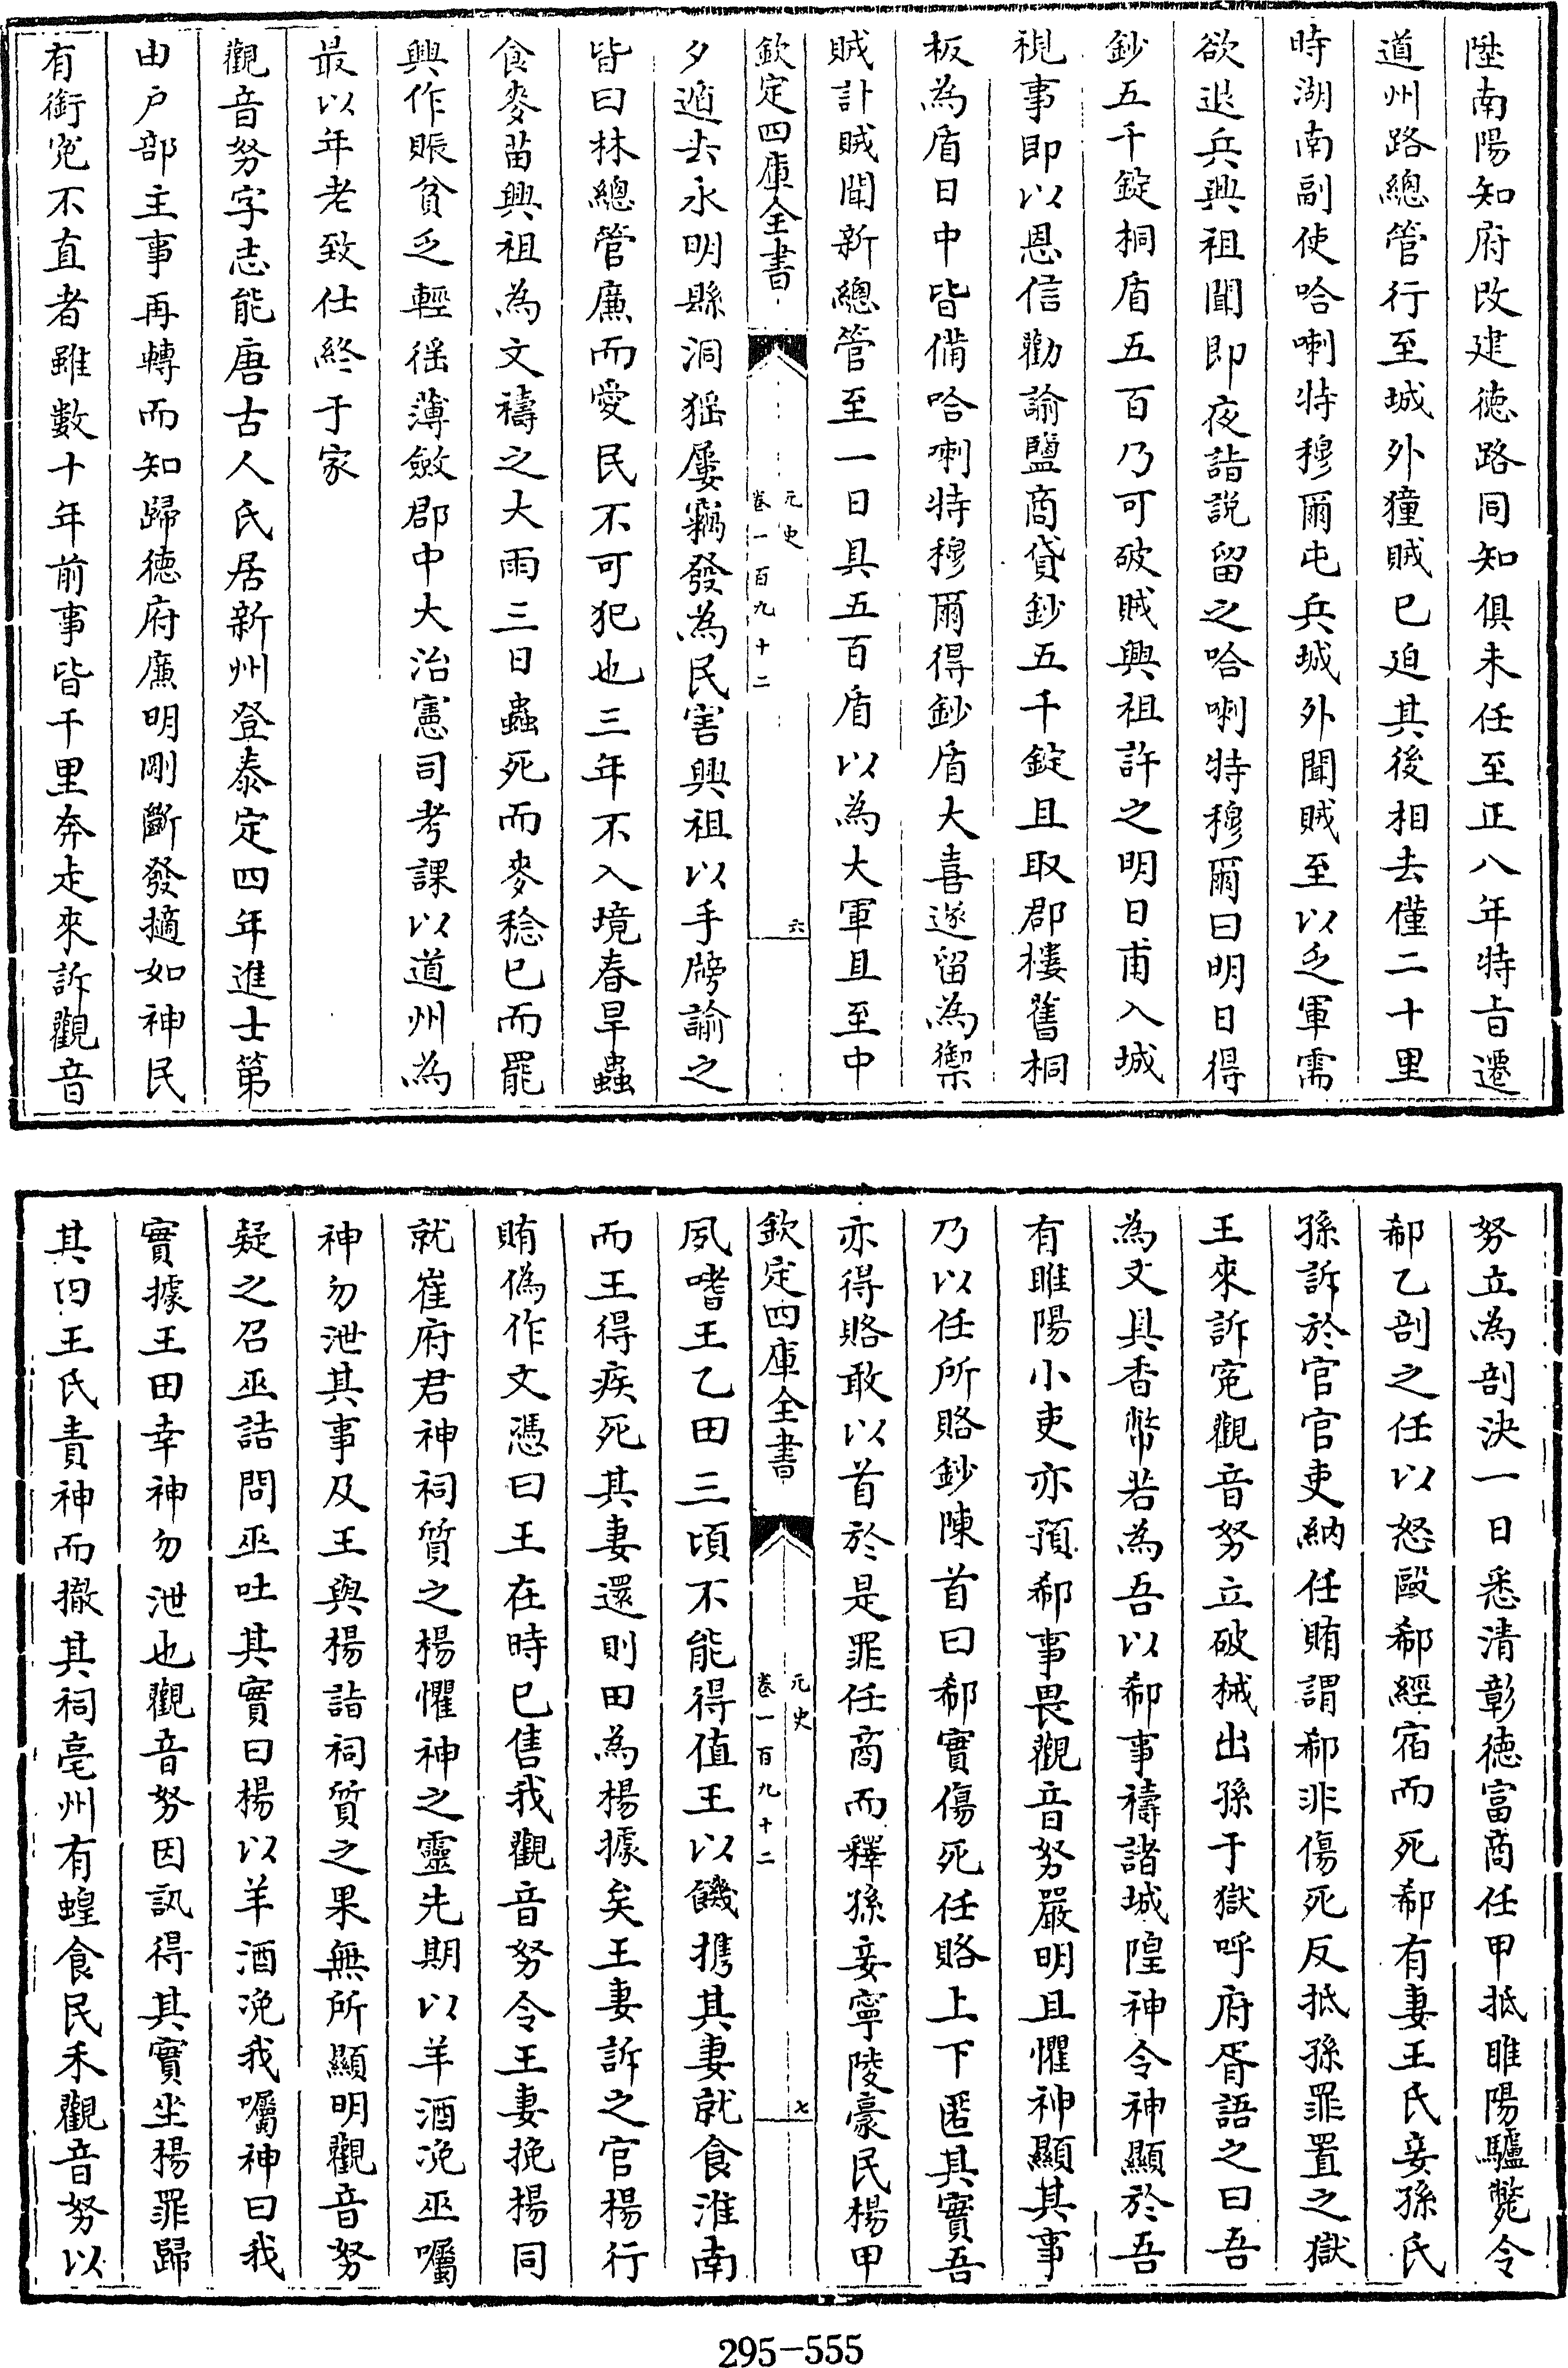 陞南陽知府改建徳路同知俱未任至正八年特㫖遷
道州路總管行至城外獞賊已迫其後相去僅二十里
時湖南副使哈喇特穆爾屯兵城外聞賊至以乏軍需
欲退兵興祖聞即夜詣説留之哈喇特穆爾曰明日得
鈔五千錠桐盾五百乃可破賊興祖許之明日甫入城
視事即以恩信勸諭鹽商貸鈔五千錠且取郡樓舊桐
板為盾日中皆備哈喇特穆爾得鈔盾大喜遂留為禦
賊計賊聞新總管至一日具五百盾以為大軍且至中
欽定四庫全書
元史
卷一百九十二
六
夕遁去永明縣洞猺屢竊發為民害興祖以手牓諭之
皆曰林總管廉而愛民不可犯也三年不入境春旱蟲
食麥苗興祖為文禱之大雨三日蟲死而麥稔已而罷
興作賑貧乏輕徭薄斂郡中大治憲司考課以道州為
最以年老致仕終于家
觀音努字志能唐古人氏居新州登泰定四年進士第
由户部主事再轉而知歸徳府廉明剛斷發擿如神民
有銜寃不直者雖數十年前事皆千里奔走來訴觀音
努立為剖決一日悉清彰徳富商任甲抵睢陽驢斃令
郗乙剖之任以怒毆郗經宿而死郗有妻王氏妾孫氏
孫訴於官官吏納任賄謂郗非傷死反抵孫罪置之獄
王來訴寃觀音努立破械出孫于獄呼府胥語之曰吾
為文具香幣若為吾以郗事禱諸城隍神令神顯於吾
有睢陽小吏亦預郗事畏觀音努嚴明且懼神顯其事
乃以任所賂鈔陳首曰郗實傷死任賂上下匿其實吾
亦得賂敢以首於是罪任商而釋孫妾寧陵豪民楊甲
欽定四庫全書
元史
卷一百九十二
七
夙嗜王乙田三頃不能得值王以饑携其妻就食淮南
而王得疾死其妻還則田為楊據矣王妻訴之官楊行
賄偽作文憑曰王在時已售我觀音努令王妻挽楊同
就崔府君神祠質之楊懼神之靈先期以羊酒浼巫囑
神勿泄其事及王與楊詣祠質之果無所顯明觀音努
疑之召巫詰問巫吐其實曰楊以羊酒浼我囑神曰我
實據王田幸神勿泄也觀音努因訊得其實坐楊罪歸
其田王氏責神而撤其祠亳州有蝗食民禾觀音努以
295-555